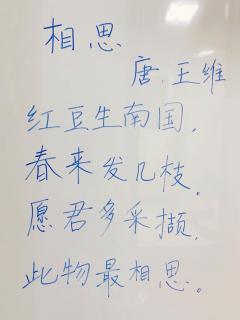 相思
唐.王维
红豆生南国,
春来发几枝。
愿君多采撷,
此物最相思。